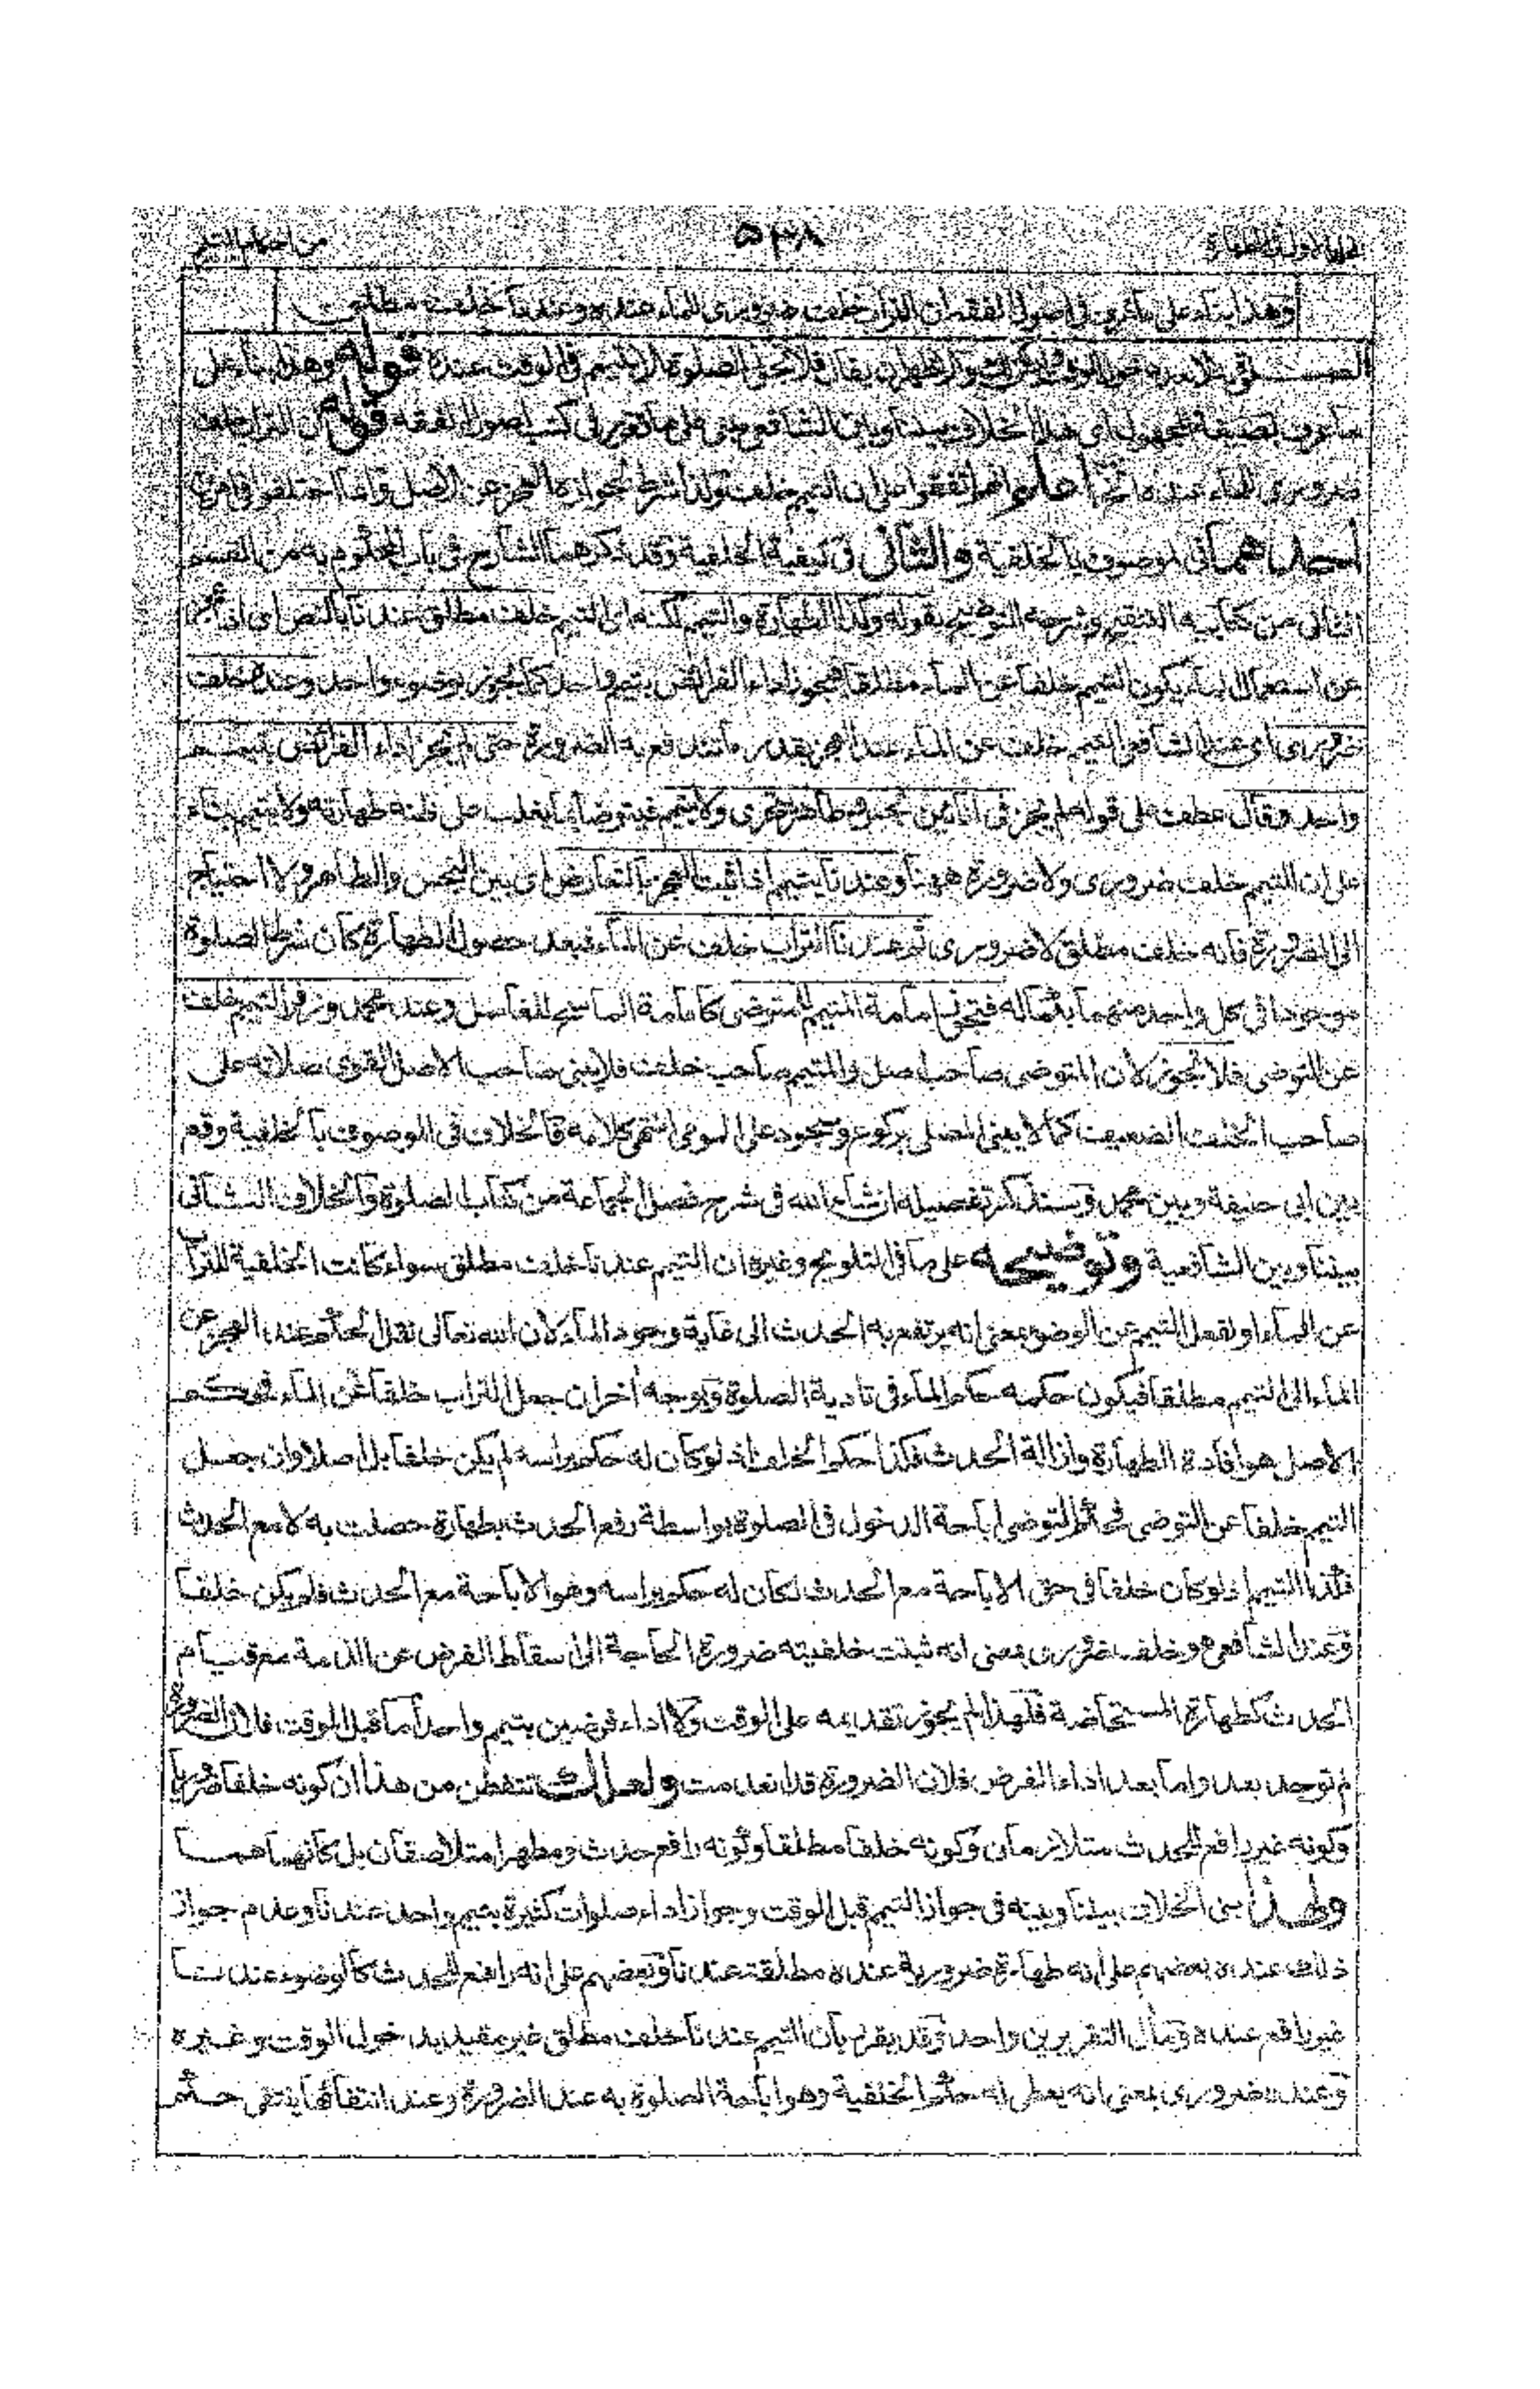 ۵۳۸
وهذا بناء على ما عرف فى اصول الفقه ان التراب خلف ضرورى للماء عنده وعندنا خلف مطلق
فلا تجوز الصلوة الا بتيمم فى الوقت عنده قوله وهذا بناء على
ما عرف بصيغة المجهول اى هذا الخلاف بيننا وبين الشافعى مبنى على ما تقرر فى كتب اصول الفقه قوله ان التراب خلف
ضرورى للماء عنده اتفقوا على ان التيمم خلف ولذا شرط لجوازه العجز عن الاصل وانما اختلفوا فى امرين
احدهما فى الموصوف بالخلفية والثانى فى كيفية الخلفية وقد ذكرهما الشارح فى باب المحكوم به من القسم
الثانى من كتابيه التنقيح وشرحه التوضيح بقوله وكذا الطهارة والتيمم لكنه اى التيمم خلف مطلق عندنا بالنص اى اذا عجز
عن استعمال الماء يكون التيمم خلفا عن الماء مطلقا فيجوز اداء الفرائض بتيمم واحد كما يجوز بوضوء واحد وعنده خلف
ضرورى اى عند الشافعى التيمم خلف عن الماء عند العجز بقدر ما تندفع به الضرورة حتى لم يجز اداء الفرائض بتيمم
واحد وقال عطف على قوله لم يجز فى انائين نجس وطاهر يتحرى ولا يتيمم فيتوضأ بما يغلب على ظنه طهارته ولا يتيمم بناء
على ان التيمم خلف ضرورى ولا ضرورة ههنا وعندنا يتيمم اذا ثبت العجز بالتعارض اى بين النجس والطاهر ولا احتياج
الى الضرورة فانه خلف مطلق لا ضرورى ثم عندنا التراب خلف عن الماء فبعد حصول الطهارة كان شرط الصلوة
موجودا فى كل واحد منهما بكماله فتجوز امامة المتيمم للمتوضى كامامة الماسح للغاسل وعند محمد وزفر التيمم خلف
عن التوضى فلا يجوز لان المتوضى صاحب اصل والمتيمم صاحب خلف فلا يبنى صاحب الاصل القوى صلاته على
صاحب الخلف الضعيف كما لا يبنى المصلى بركوع وسجود على المومى انتهى كلامه فالخلاف فى الموصوف بالخلفية وقع
بين ابى حنيفة وبين محمد وسيذكر تفصيله ان شاء الله فى شرح فصل الجماعة من كتاب الصلوة والخلاف الثانى
بيننا وبين الشافعية وتوضيحه على ما فى التلويح وغيره ان التيمم عندنا خلف مطلق سواء كانت الخلفية للتراب
عن الماء او لفعل التيمم عن الوضوء بمعنى انه يرتفع به الحدث الى غاية وجود الماء لان الله تعالى نقل الحكم عند العجز عن
الماء الى التيمم مطلقا فيكون حكمه حكم الماء فى تادية الصلوة وبوجه اخر ان جعل التراب خلفا عن الماء فحكم
الاصل هو افادة الطهارة وازالة الحدث فكذا حكم الخلف اذ لو كان له حكم براسه لم يكن خلفا بل اصلا وان جعل
التيمم خلفا عن التوضى فحكم التوضى اباحة الدخول فى الصلوة بواسطة رفع الحدث بطهارة حصلت به لا مع الحدث
فكذا التيمم اذ لو كان خلفا فى حق الاباحة مع الحدث لكان له حكم براسه وهو الاباحة مع الحدث فلم يكن خلفا
وعند الشافعى هو خلف ضرورى بمعنى انه ثبتت خلفيته ضرورة الحاجة الى اسقاط الفرض عن الذمة مع قيام
الحدث كطهارة المستحاضة فلهذا لم يجوز تقديمه على الوقت ولا اداء فرضين بتيمم واحد اما قبل الوقت فلان الضرورة
لم توجد بعد واما بعد اداء الفرض فلان الضرورة قد انعدمت ولعلك تتفطن من هذا ان كونه خلفا ضروريا
وكونه غير رافع للحدث متلازمان وكونه خلفا مطلقا وكونه رافع حدث ومطهرا متلاصقان بل كانهما هما
ولهذا بنى الخلاف بيننا وبينه فى جواز التيمم قبل الوقت وجواز اداء صلوات كثيرة بتيمم واحد عندنا وعدم جواز
ذلك عنده بعضهم على انه طهارة ضرورية عنده مطلقة عندنا وبعضهم على انه رافع للحدث كالوضوء عندنا
غير رافع عنده ومآل التقريرين واحد وقد يقرر بان التيمم عندنا خلف مطلق غير مقيد بدخول الوقت وغيره
وعنده ضرورى بمعنى انه يعطى له حكم الخلفية وهو اباحة الصلوة به عند الضرورة وعند انتفائها ينتفى حكم